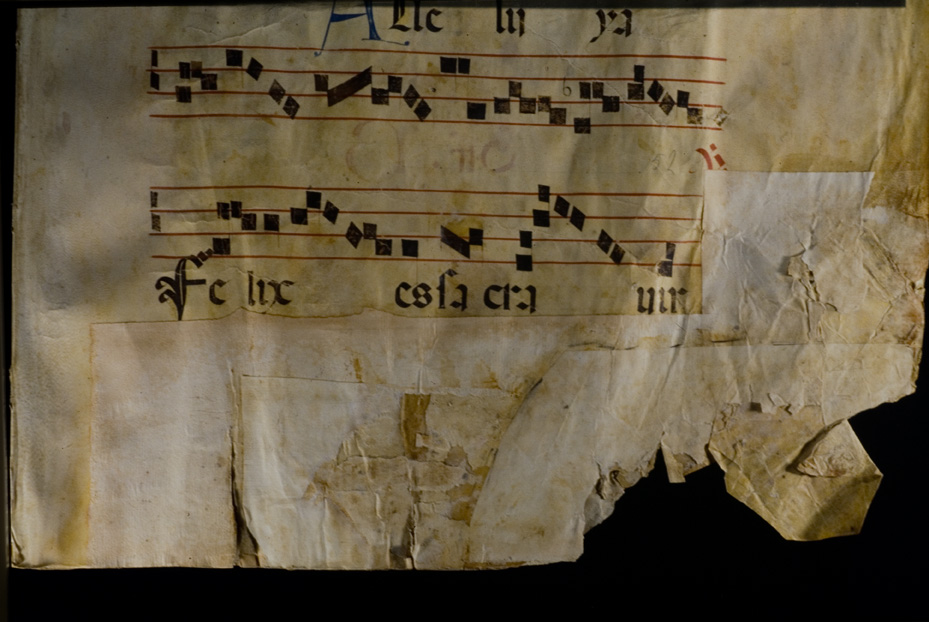 Alle lu ya
52
℣.
Fe lix es sa cra uir